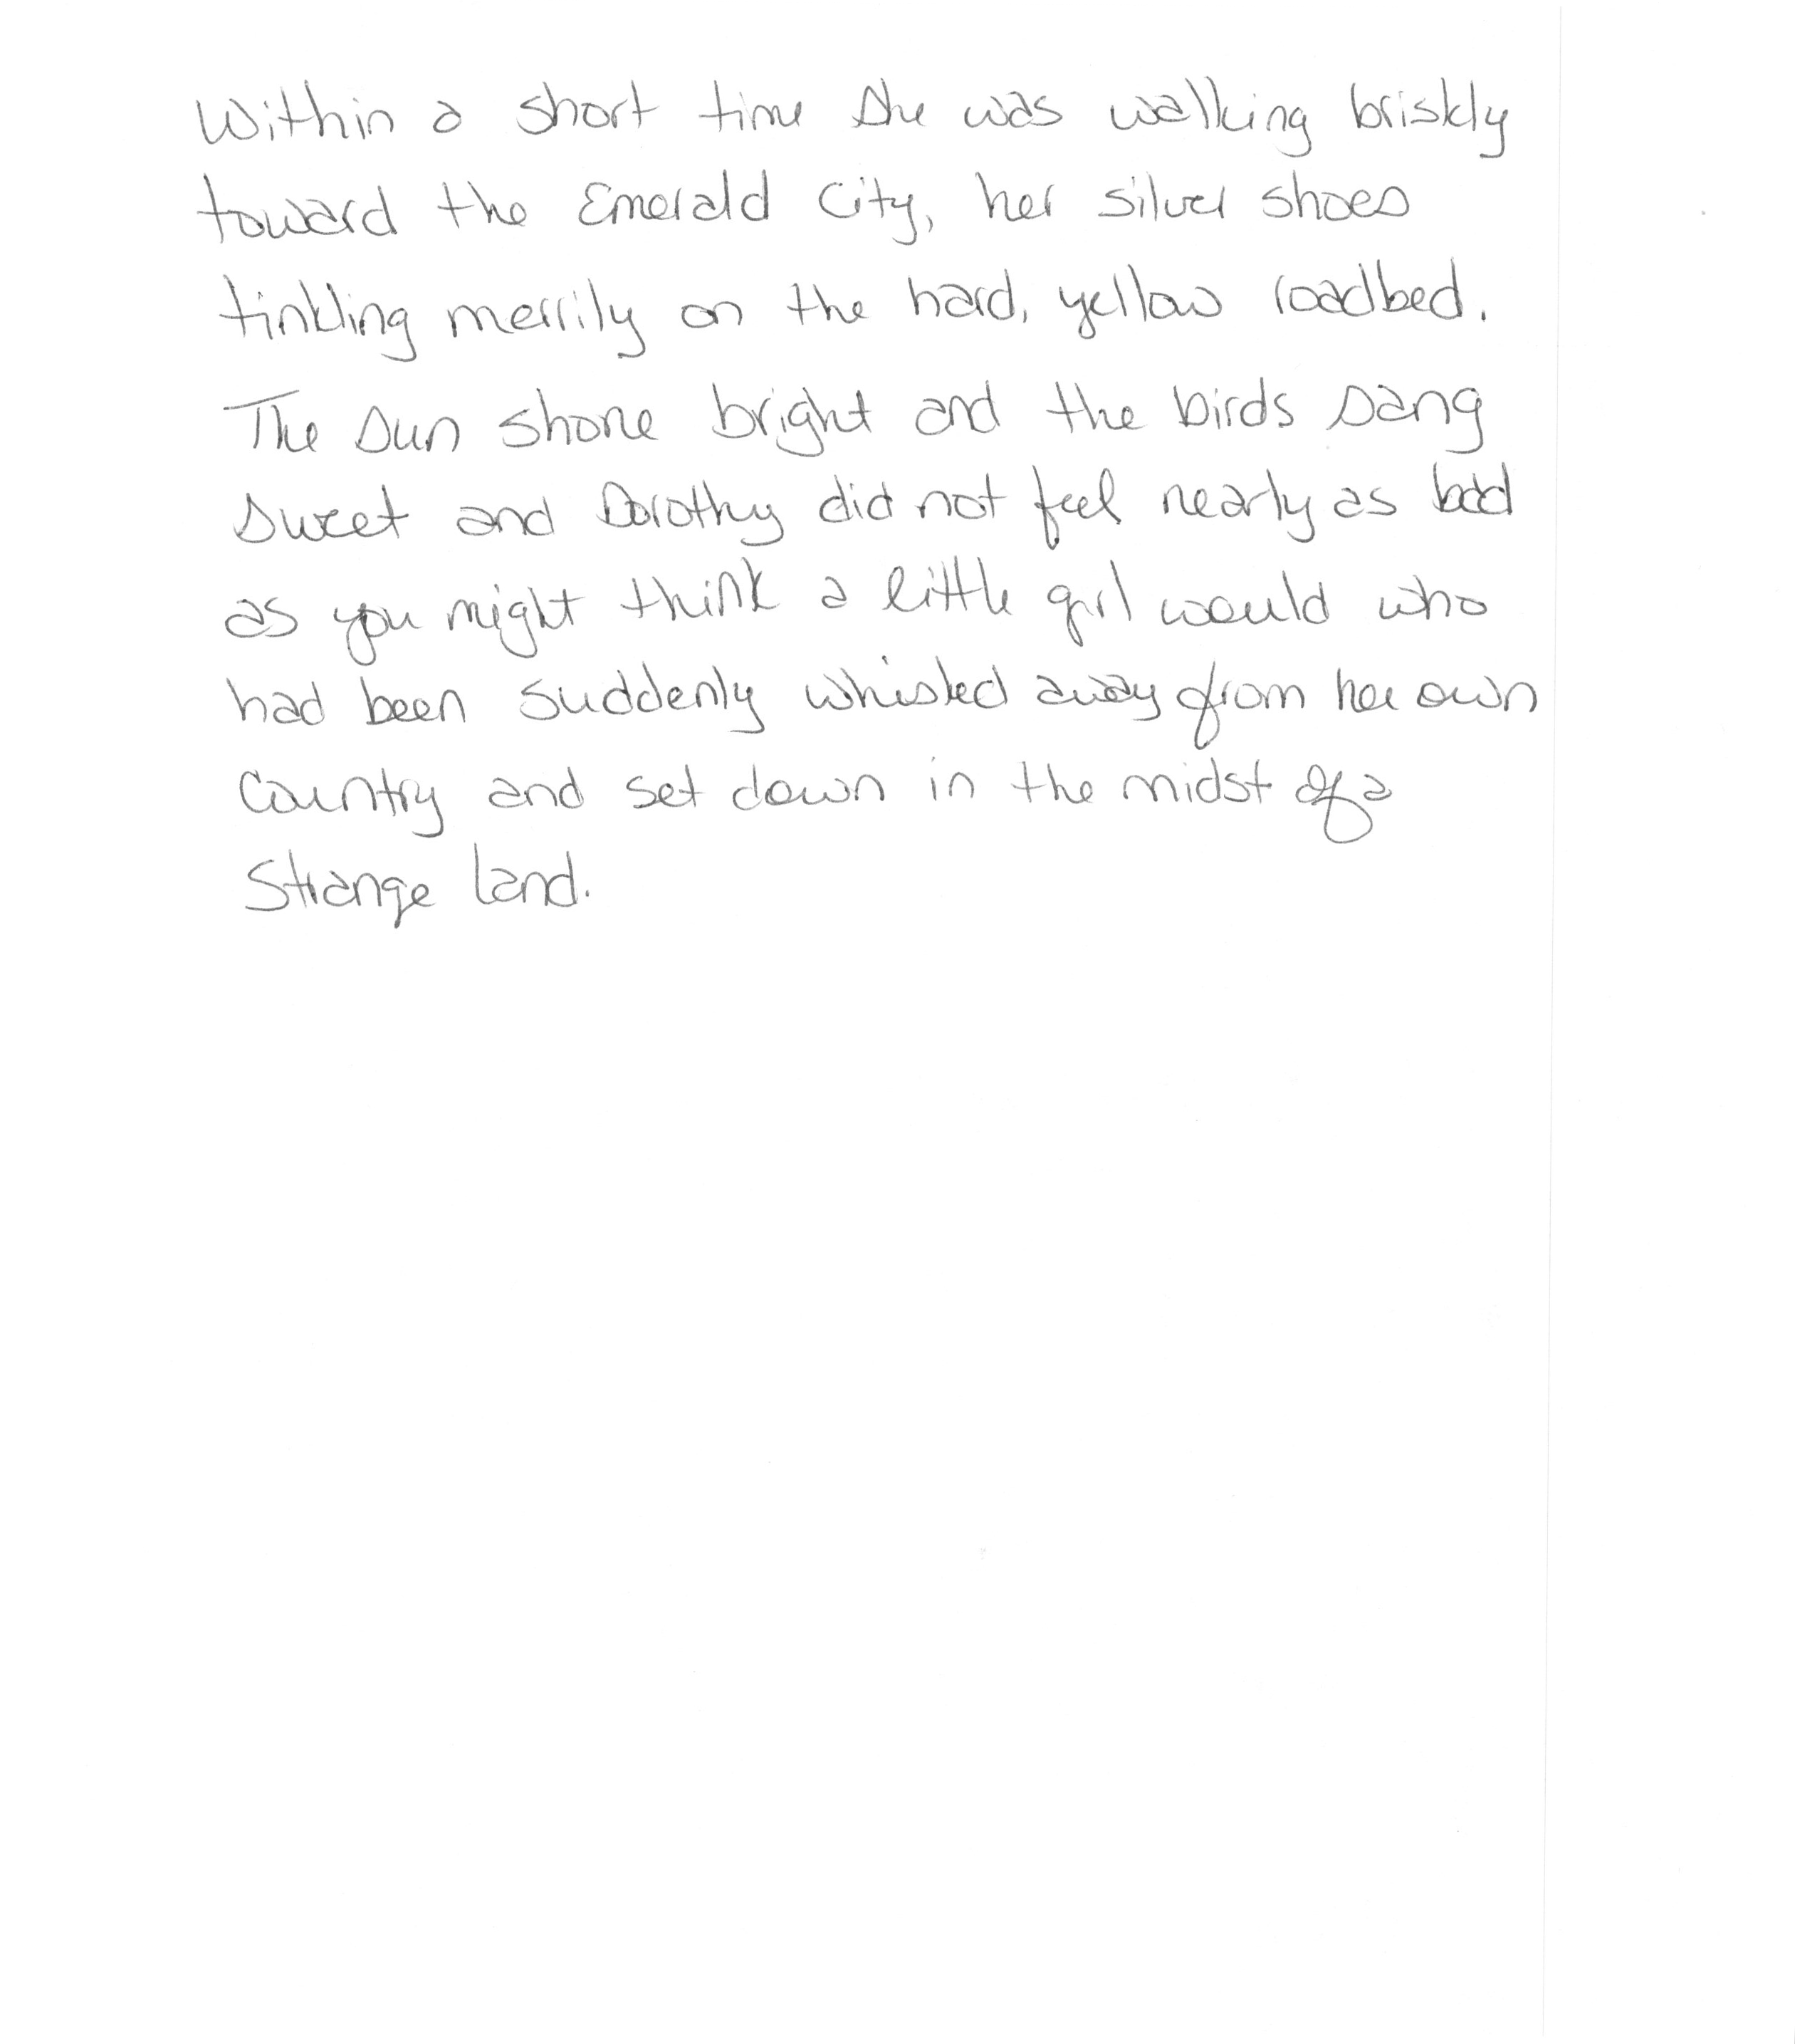 Within a short time she was walking briskly
toward the Emerald City, her silver shoes
tinkling merrily on the hard, yellow roadbed.
The sun shone bright and the birds sang
sweet and Dorothy did not feel nearly as bad
as you might think a little girl would who
had been suddenly whisked away from her own
country and set down in the midst of a
strange land.